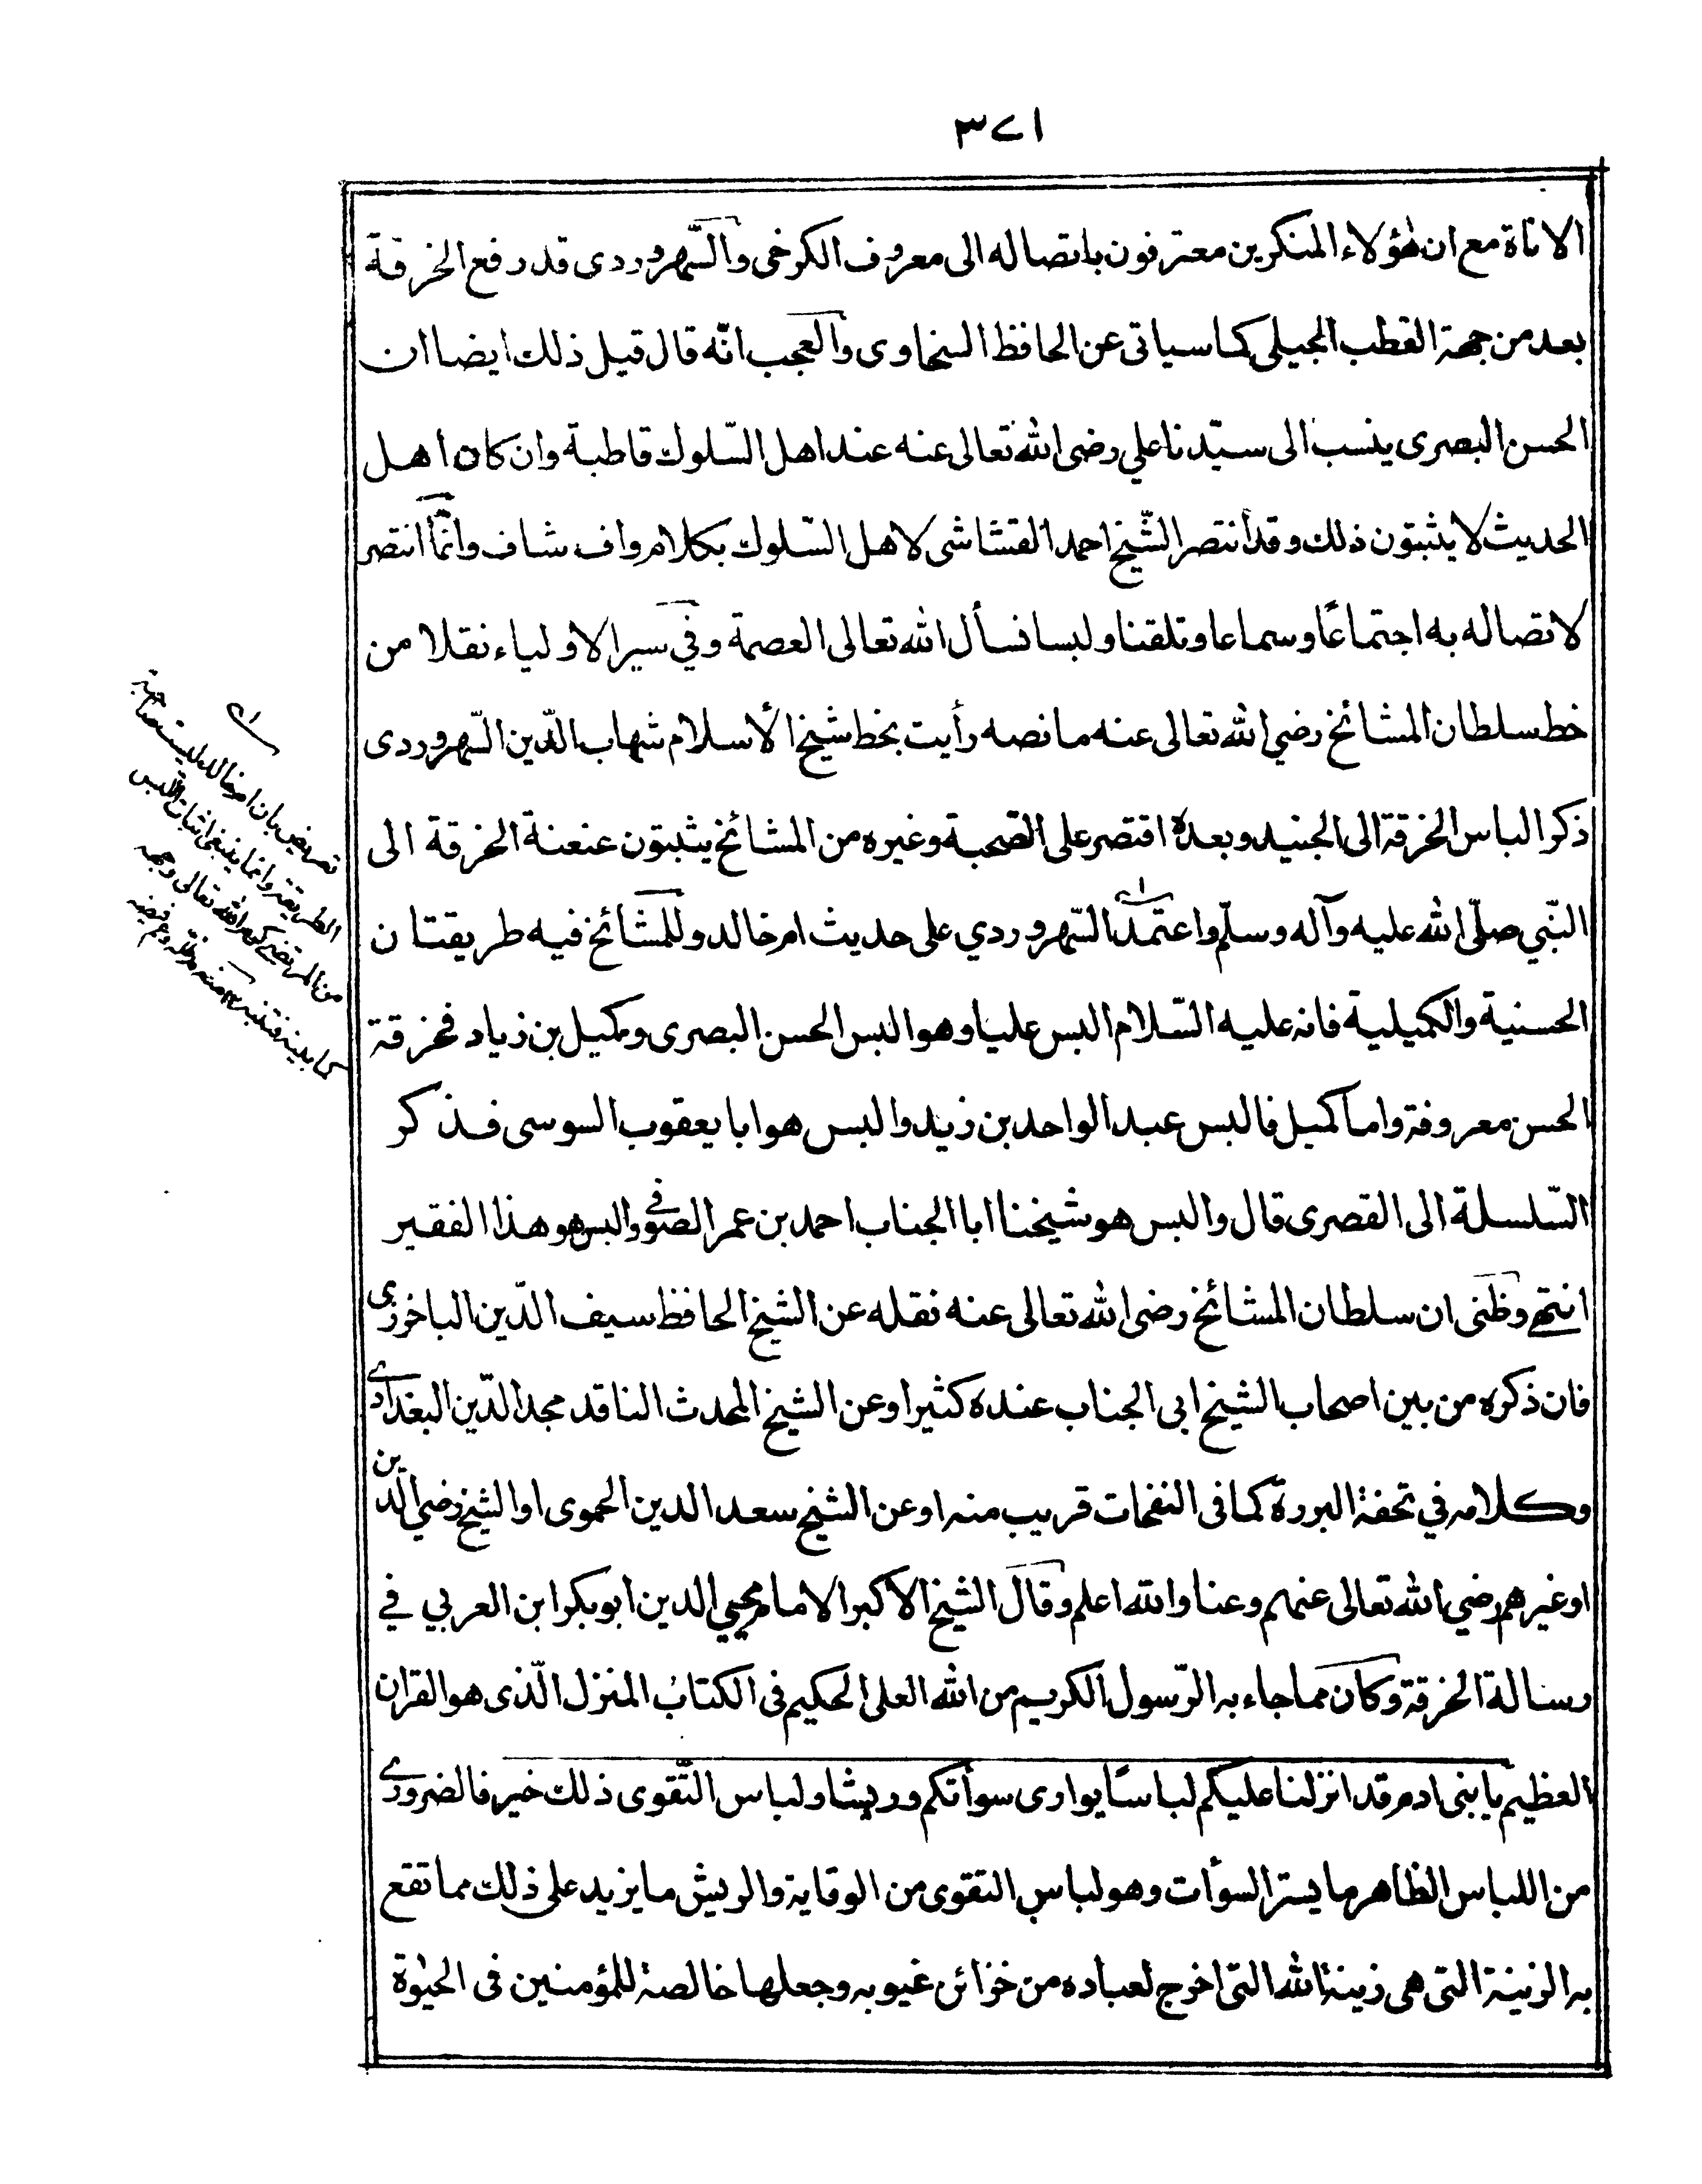 ٣٧١
الاناة مع ان هٰؤلاء المنكرين معترفون باتصاله الى معروف الكرخى والسّهروردى قد رفع الخرقة
بعد من جهة القطب الجيلى كما سياتى عن الحافظ السخاوى والعجب انّه قال قبل ذلك ايضا ان
الحسن البصرى ينسب الى سيّدنا علي رضى الله تعالى عنه عند اهل السّلوك قاطبة وان كان اهل
الحديث لا يثبتون ذلك وقد انتصر الشّيخ احمد القشاشى لاهل السّلوك بكلام واف شاف وانّما انتصر
لاتصاله به اجتماعًا وسماعا وتلقنا ولبسا نسأل الله تعالى العصمة وفي سير الاولياء نقلا من
خط سلطان المشائخ رضي الله تعالى عنه ما نصه رأيت بخط شيخ الأسلام شهاب الدّين السّهروردى
ذكر الباس الخرقة الى الجنيد وبعده اقتصر على الصّحبة وغيره من المشائخ يثبتون عنعنة الخرقة الى
النّبي صلّى الله عليه وآله وسلّم واعتمد السّهروردي على حديث ام خالد وللمشائخ فيه طريقتان
الحسنية والكميلية فانه عليه السّلام البس عليا وهو البس الحسن البصرى وكميل بن زياد فخرقة
الحسن معروفة واما كميل فالبس عبد الواحد بن زيد والبس هو ابا يعقوب السوسى فذكر
السّلسلة الى القصرى قال والبس هو شيخنا ابا الجناب احمد بن عمر الصوفي والبس هو هذا الفقير
انتهى وظنى ان سلطان المشائخ رضى الله تعالى عنه نقله عن الشيخ الحافظ سيف الدّين الباخرزى
فان ذكره من بين اصحاب الشيخ ابى الجناب عنده كثيرا وعن الشيخ المحدث الناقد مجد الدّين البغدادے
وكلامه في تحفة البررة كما فى النفحات قريب منه او عن الشيخ سعد الدين الحموى او الشيخ رضي الدين
او غيرهم رضي الله تعالى عنهم وعنا والله اعلم وقال الشيخ الاكبر الامام محيي الدين ابو بكر ابن العربي في
رسالة الخرقة وكان مما جاء به الرّسول الكريم من الله العلى الحكيم فى الكتاب المنزل الّذى هو القران
العظيم يا بنى ادم قد انزلنا عليكم لباسًا يوارى سوأتكم وريشا ولباس التّقوى ذلك خير فالضرورے
من اللباس الظاهر ما يستر السوأت وهو لباس التقوى من الوقاية والريش ما يزيد على ذلك مما تقع
به الزينة التى هى زينة الله التى اخرج لعباده من خزائن غيوبه وجعلها خالصة للمؤمنين فى الحيٰوة
تعريض بان ام خالد ليست صاحبة
الطريقة وانما ينبغى اثبات اللبس
من المرتضى كرم الله تعالى وجهه
كما بينه فتنبه ١٢ منه